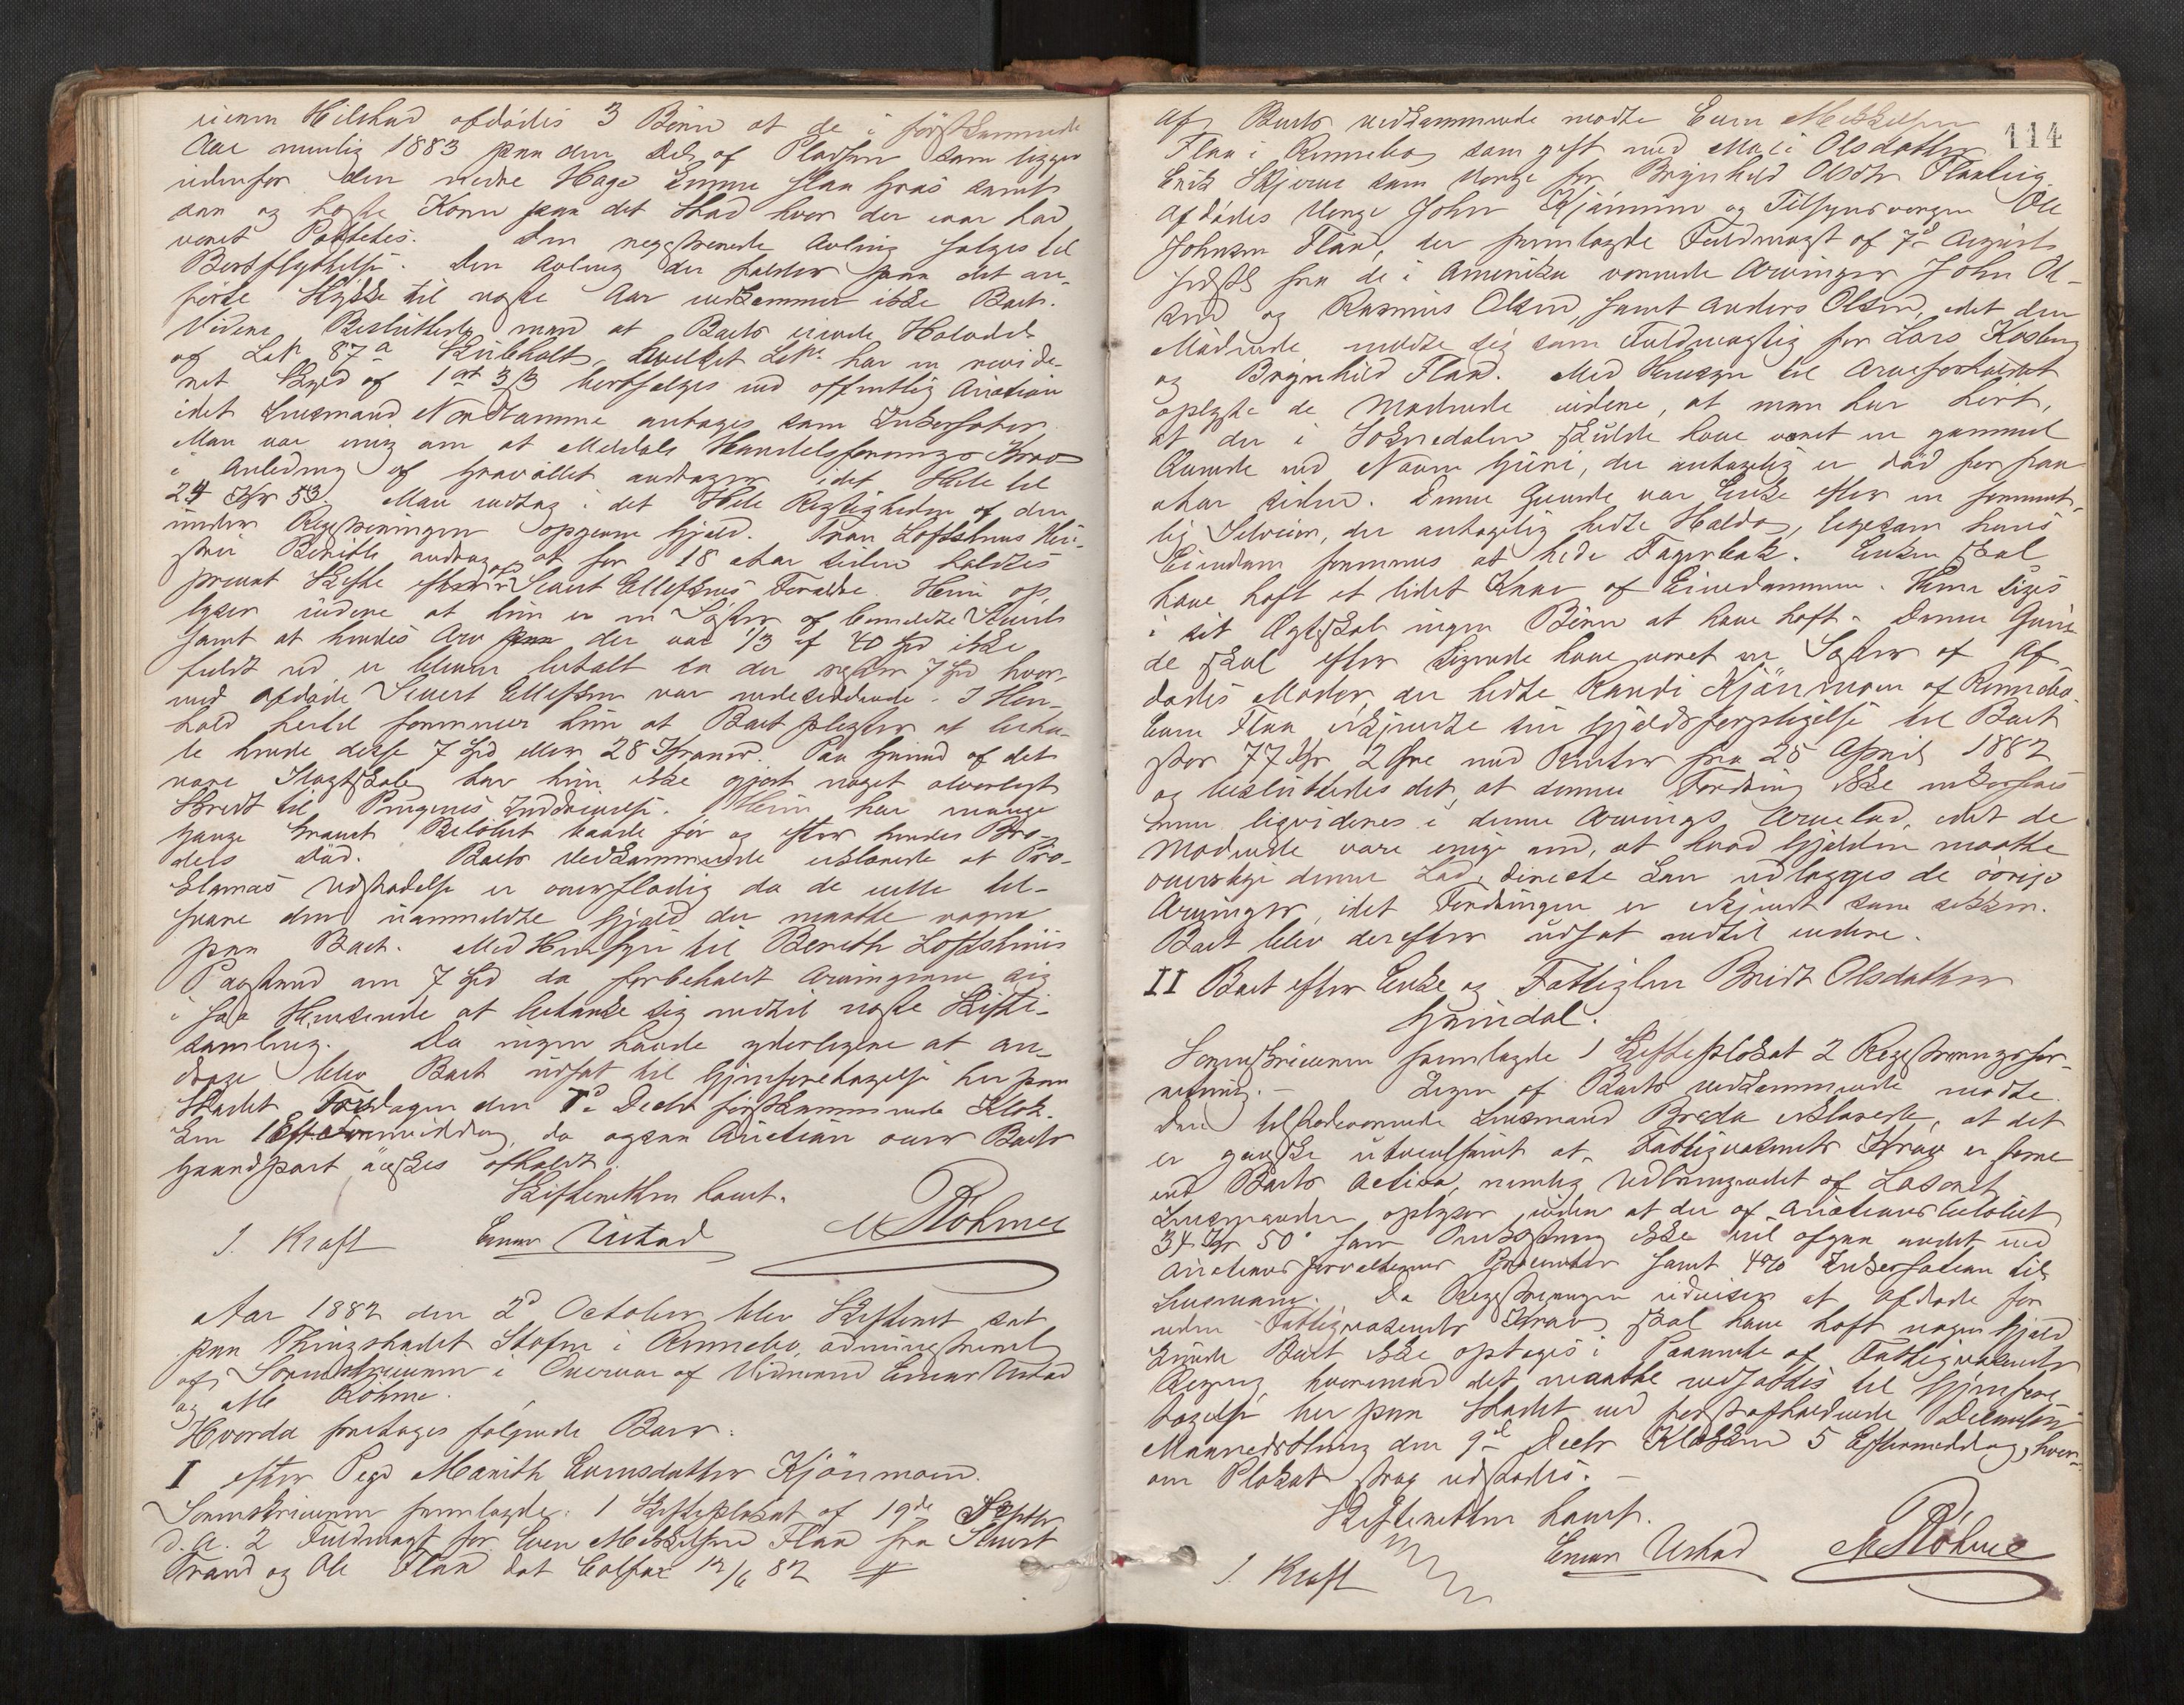 Hilstad afdødes 3 Börn at de i förstkommende
Aar nemlig 1883 paa den Del af Pladsen som ligger
udenfor den nedre Hage kunne slaa Græs samt
saa og høste Korn paa det Stad hvor der iaar har
været Poteter. Den registrerede Avling sælges til
Bortflyttelse. Den Avling der falder paa det an-
förte Stykke til næste Aar vedkommer ikke Boet.
Videre Besluttedes med at Boets eiende Halvdel
af LNr 87a Kúlbolts, hvilket LNr har en revide-
ret Skyld af 1 ort 3 β bortsælges ved offentlig Auction
idet Lensmand Nordtømme antages som Inkassator.
Man var enig om at Meldals Handelsforenings Krav
i Anledning af Gravøllet andrager idet Hele til
24 Kr 53. Man vedtog i det Hele Rigtigheden af den
under Registreringen opgivne Gjæld. Fran Loftshuus
Berith androg at for 18 Aar siden holdtes
privat Skifte efter Sivert Ellefsens Forældre. Hun op
lyser videre at hun er en Søster af bemeldte Siverts
samt at hendes Arv der var 1/3 af 40 Spd ikke
fuldt ud er bleven betalt da der rester 7 Spd hvor-
med afdøde Sivert Ellefsen var indesiddende. I Hen-
hold hertil formener hun at Boet pligter at beta-
le hende disse 7 Spd eller 28 Kroner. Paa Grund af det
nære Slagtskab har hun ikke gjort noget alvorligt
Skridt til Pengenes Inddrivelse. Hun har mange
Gange krævet Belöbet baade før og efter hendes Bro-
ders Död. Boets Vedkommende erklærede at Pro-
klamas Udstedelse er overflødig da de vilde til-
svare den uanmeldte Gjæld der maatte
paa Boet. Med Hensyn til Berith Loftshuus
Paastand om 7 Spd da forbeholdt Arvingerne sig
i saa Henseende at betænke sig indtil næste Skifte-
samling. Da ingen havde yderligere at an-
drage blev Boet udsat til Gjenforetagelse her paa
Stedet Torsdagen den 7de Decbr førstkommende Klok-
ken 1 Eftermiddag, da ogsaa Auction over Boets
Gaardpart æskes afholdt.
Skifteretten hævet.
J. Kraft Einar Ustad M Röhme
Aar 1882 den 2d October blev Skifteret sat
paa Thingstedet Stafne i Rennebo, administreret
af Sorenskriveren i Overvær af Vidnerne Einar Ustad
og M Röhme.
Hvorda foretoges følgende Boer:
I efter Pige Marith Evensdatter Kjönmoen.
Sorenskriveren fremlagde: 1 Skifteplakat af 19de Septbr
d. A. 2 Fuldmagt for Even Mikkelsen Flaa fra Sivert
Traad og Ole Flaa dat Colfax 12/6 82
114
Af Boets vedkommende mødte Even Mikkelsen
Flaa i Rennebo som gift med Mari Olsdatter
Erik Skjerve som Verge for Brynhild Olsdtr Flaalrig
afdødes Verge John Kjönmoen og Tilsynsvergen Ole
Johnsen Flaa, der fremlagde Fuldmagt af 7de August
sidstl fra de i Amerika værende Arvinger John Ol-
sen og Rasmus Olsen, samt Anders Olsen, idet den
Mødende meldte sig som Fuldmægtig for Lars Kosberg
og Brynhild Flaa. Med Hensyn til Arveforholdet
oplyste de Mødende videre, at man har hørt,
at der i Soknedalen skulde have været en gammel
Qvinde ved Navn Guri, der antagelig er død for faa
Aar siden. Denne Qvinde var Enke efter en forment-
lig Selveier, der antagelig hedte Haldo, ligesom hans
Eiendom formenes at hede Fagerbæk. Enken skal
have haft et lidet Kaar af Eiendommen. Hun siges
i sit Ægteskab ingen Börn at have haft. Denne Qvin-
de skal efter Sigende have været en Søster af Af
dødes Moder, der hedte Randi Kjönmoen af Rennebo.
Even Flaa erkjendte sin Gjældsforpligtelse til Boet
stor 77 Kr 2 Øre med Renter fra 25 April 1882
og besluttedes det, at denne Fordring ikke inkasseres
men liqvideres i denne Arvings Arvelod, idet de
Mødende vare enige om, at hvad Gjælden maatte
overstige denne Lod, denecke kan udlægges de övrige
Arvinger, idet Fordringen er erkjendt som sikker.
Boet blev derefter udsat indtil videre.
II Boet efter Enke og Fattiglem Brit Olsdatter
Grindal.
Sorenskriveren fremlagde 1 Skifteplakat 2 Registreringsfor-
retning. Ingen af Boets vedkommende mødte.
Den tilstedeværende Lensmand Breda erklærede, at det
er ganske utvivlsomt at Fattigvæsenets Krav er større
end Boets Activa, nemlig Udbringendet af Løsøret.
Lensmanden oplyser videre at der af Auctionsbelöbet
34 Kr 50 som Omkostning ikke vil afgaa andet end
Auctionsforvalterens samt 4% Inkassation til
Lensmand. Da Registreringen udviser at Afdøde for
uden Fattigvæsenets Krav skal have haft nogen Gjæld
kunde Boet ikke optages i Paavente af Fattigvæsenets
Regning, hvorimod det maatte udsættes til Gjenfore
tagelse her paa Stedet ved førstafholdende
Maanedsthing den 9de Decbr Klokken 5 Eftermiddag, hvor-
om Plakat strax udstedes.
Skifteretten hævet.
J. Kraft Einar Ustad M Röhme